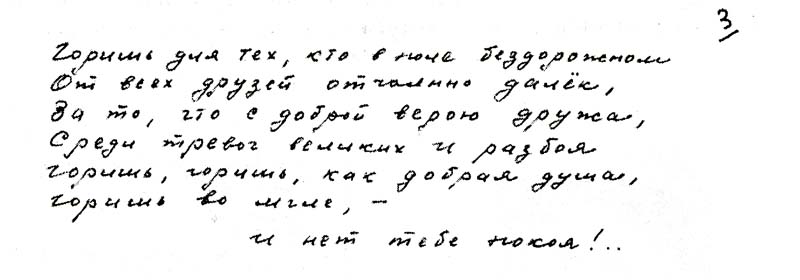 3
Горишь для тех, кто в поле бездорожном
От всех друзей отчаянно далёк,
За то, что с доброй верою дружа,
Среди тревог великих и разбоя
Горишь, горишь, как добрая душа,
Горишь во мгле, –
и нет тебе покоя!..